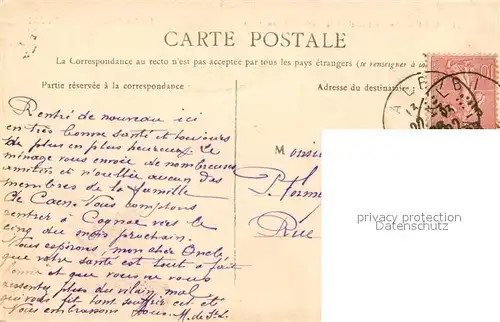 CARTE POSTALE
La Correspondance au recto n'est pas acceptée par tous les pays étrangers (se renseigner à la
Partie réservée à la correspondance
Adresse du destinataire
Rentré de nouveau ici
en très bonne santé et toujours
de plus en plus heureux. Le
ménage vous envoie de nombreuses
amitiés et n'oublie aucun des
membres de la famille
de Caen. Nous comptons
rentrer à Cognac vers le
cinq du mois prochain.
Nous espérons, mon cher Oncle
que votre santé est tout à fait
bonne et que vous ne vous
ressentez plus du vilain mal
qui vous fit tant souffrir cet
Nous embrassons tous. M. de St L.
Monsie
Rue
privacy protection
www.oldthing.com